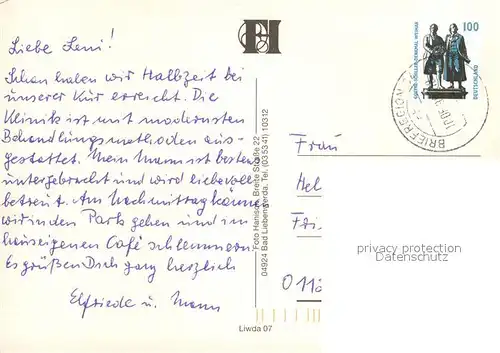 Liebe Leni!
Schon haben wir Halbzeit bei
unserer Kur erreicht. Die
Klinik ist mit modernsten
Behandlungsmethoden aus-
gestattet. Mein Mann ist bestens
untergebracht und wird liebevoll
betreut. Am Nachmittag können
wir in den Park gehen und im
hauseigenen Café schlemmern.
Es grüßen Dich ganz herzlich
Elfriede u. Mann
FH
Foto Hanisch, Breite Straße 22
04924 Bad Liebenwerda, Tel. (035341) 10312
Liwda 07
100
GOETHE-SCHILLER-DENKMAL WEIMAR
DEUTSCHLAND
BRIEFREGION
Frau
Hel
privacy protection
Datenschutz